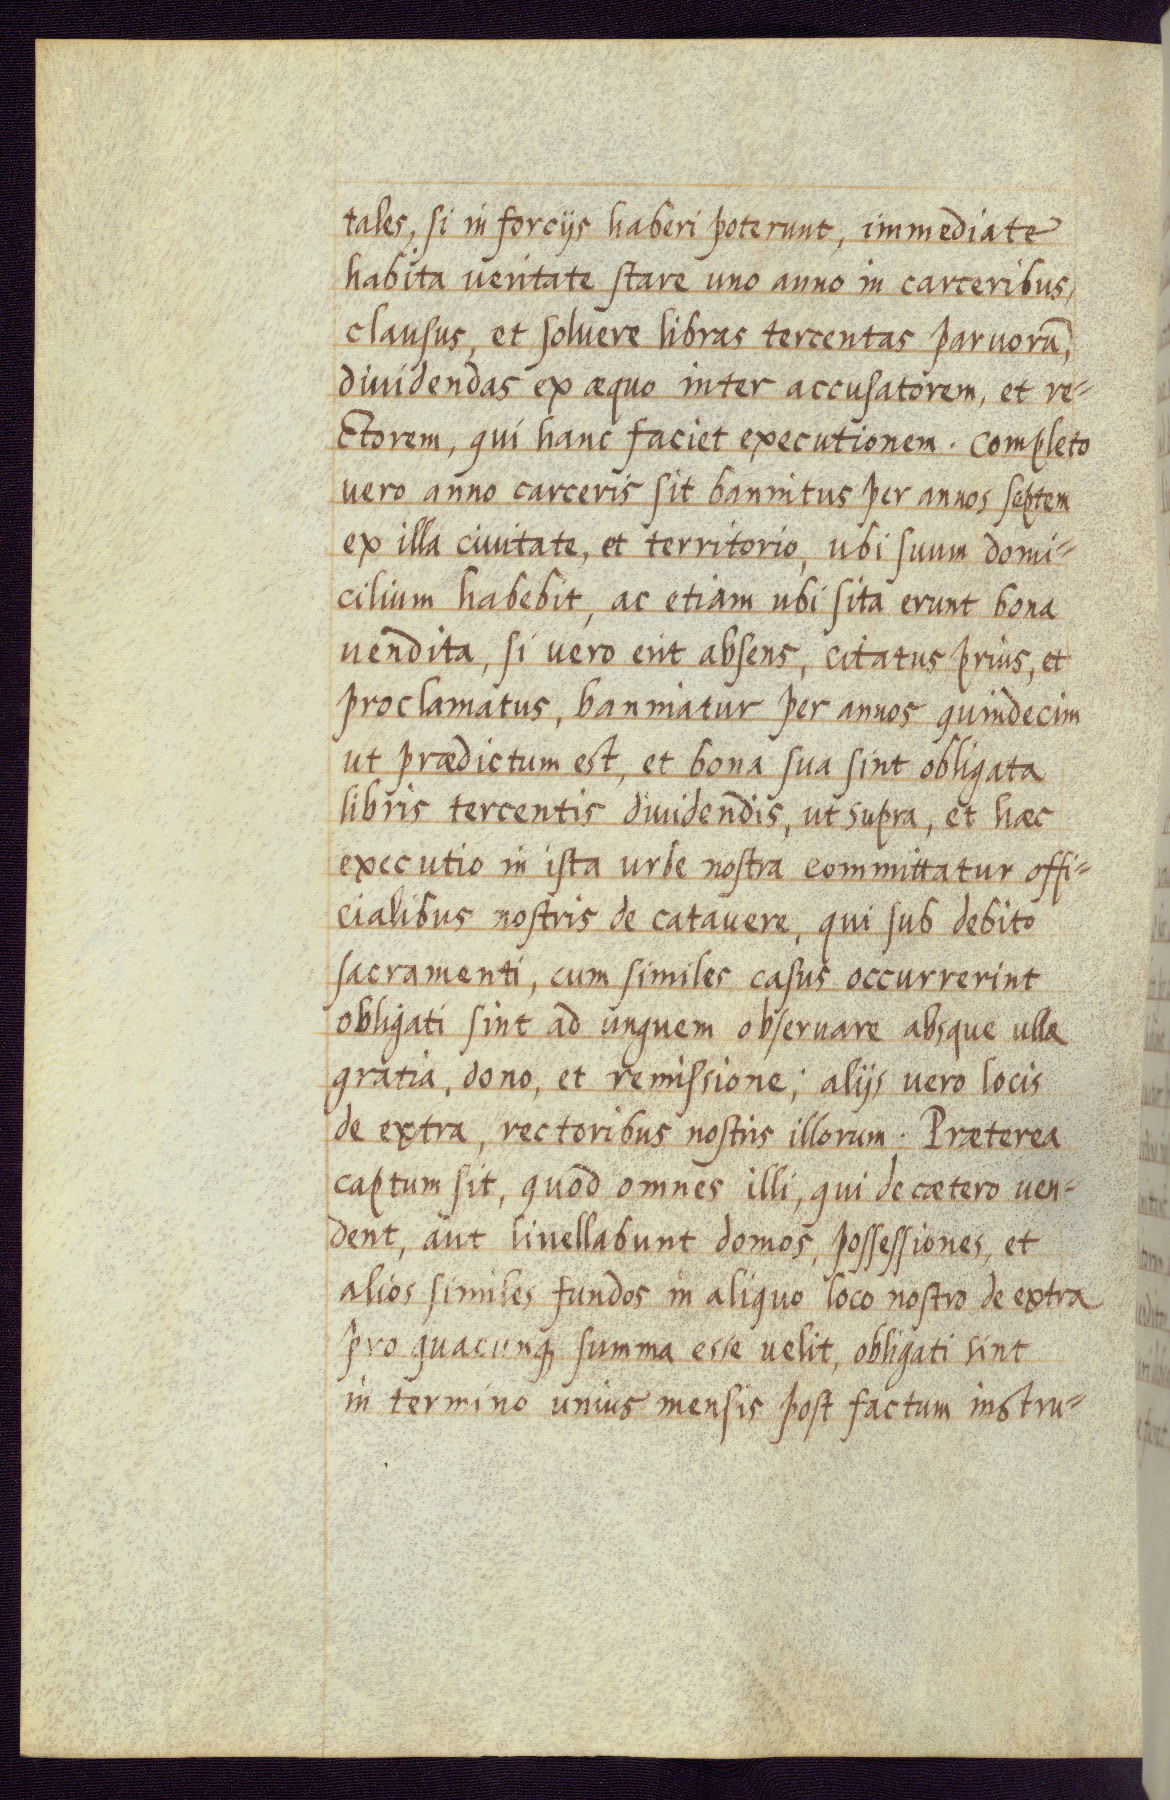 tales, si in forcijs haberi poterunt, immediate
habita veritate stare uno anno in carceribus,
clausus, et solvere libras tercentas parvorũ,
dividendas ex æquo inter accusatorem, et re=
ctorem, qui hanc faciet executionem. completo
vero anno carceris sit bannitus per annos septem
ex illa civitate, et territorio, ubi suum domi=
cilium habebit, ac etiam ubi sita erunt bona
vendita, si vero erit absens, citatus prius, et
proclamatus, banniatur per annos quindecim
ut prædictum est, et bona sua sint obligata
libris tercentis dividendis, ut supra, et hæc
executio in ista urbe nostra committatur offi=
cialibus nostris de catavere, qui sub debito
sacramenti, cum similes casus occurrerint
obligati sint ad unguem observare absque ulla
gratia, dono, et remissione; alijs vero locis
de extra, rectoribus nostris illorum. Præterea
captum sit, quod omnes illi, qui de cætero ven=
dent, aut livellabunt domos, possessiones, et
alios similes fundos in aliquo loco nostro de extra
pro quacunq, summa esse velit, obligati sint
in termino unius mensis post factum instru=